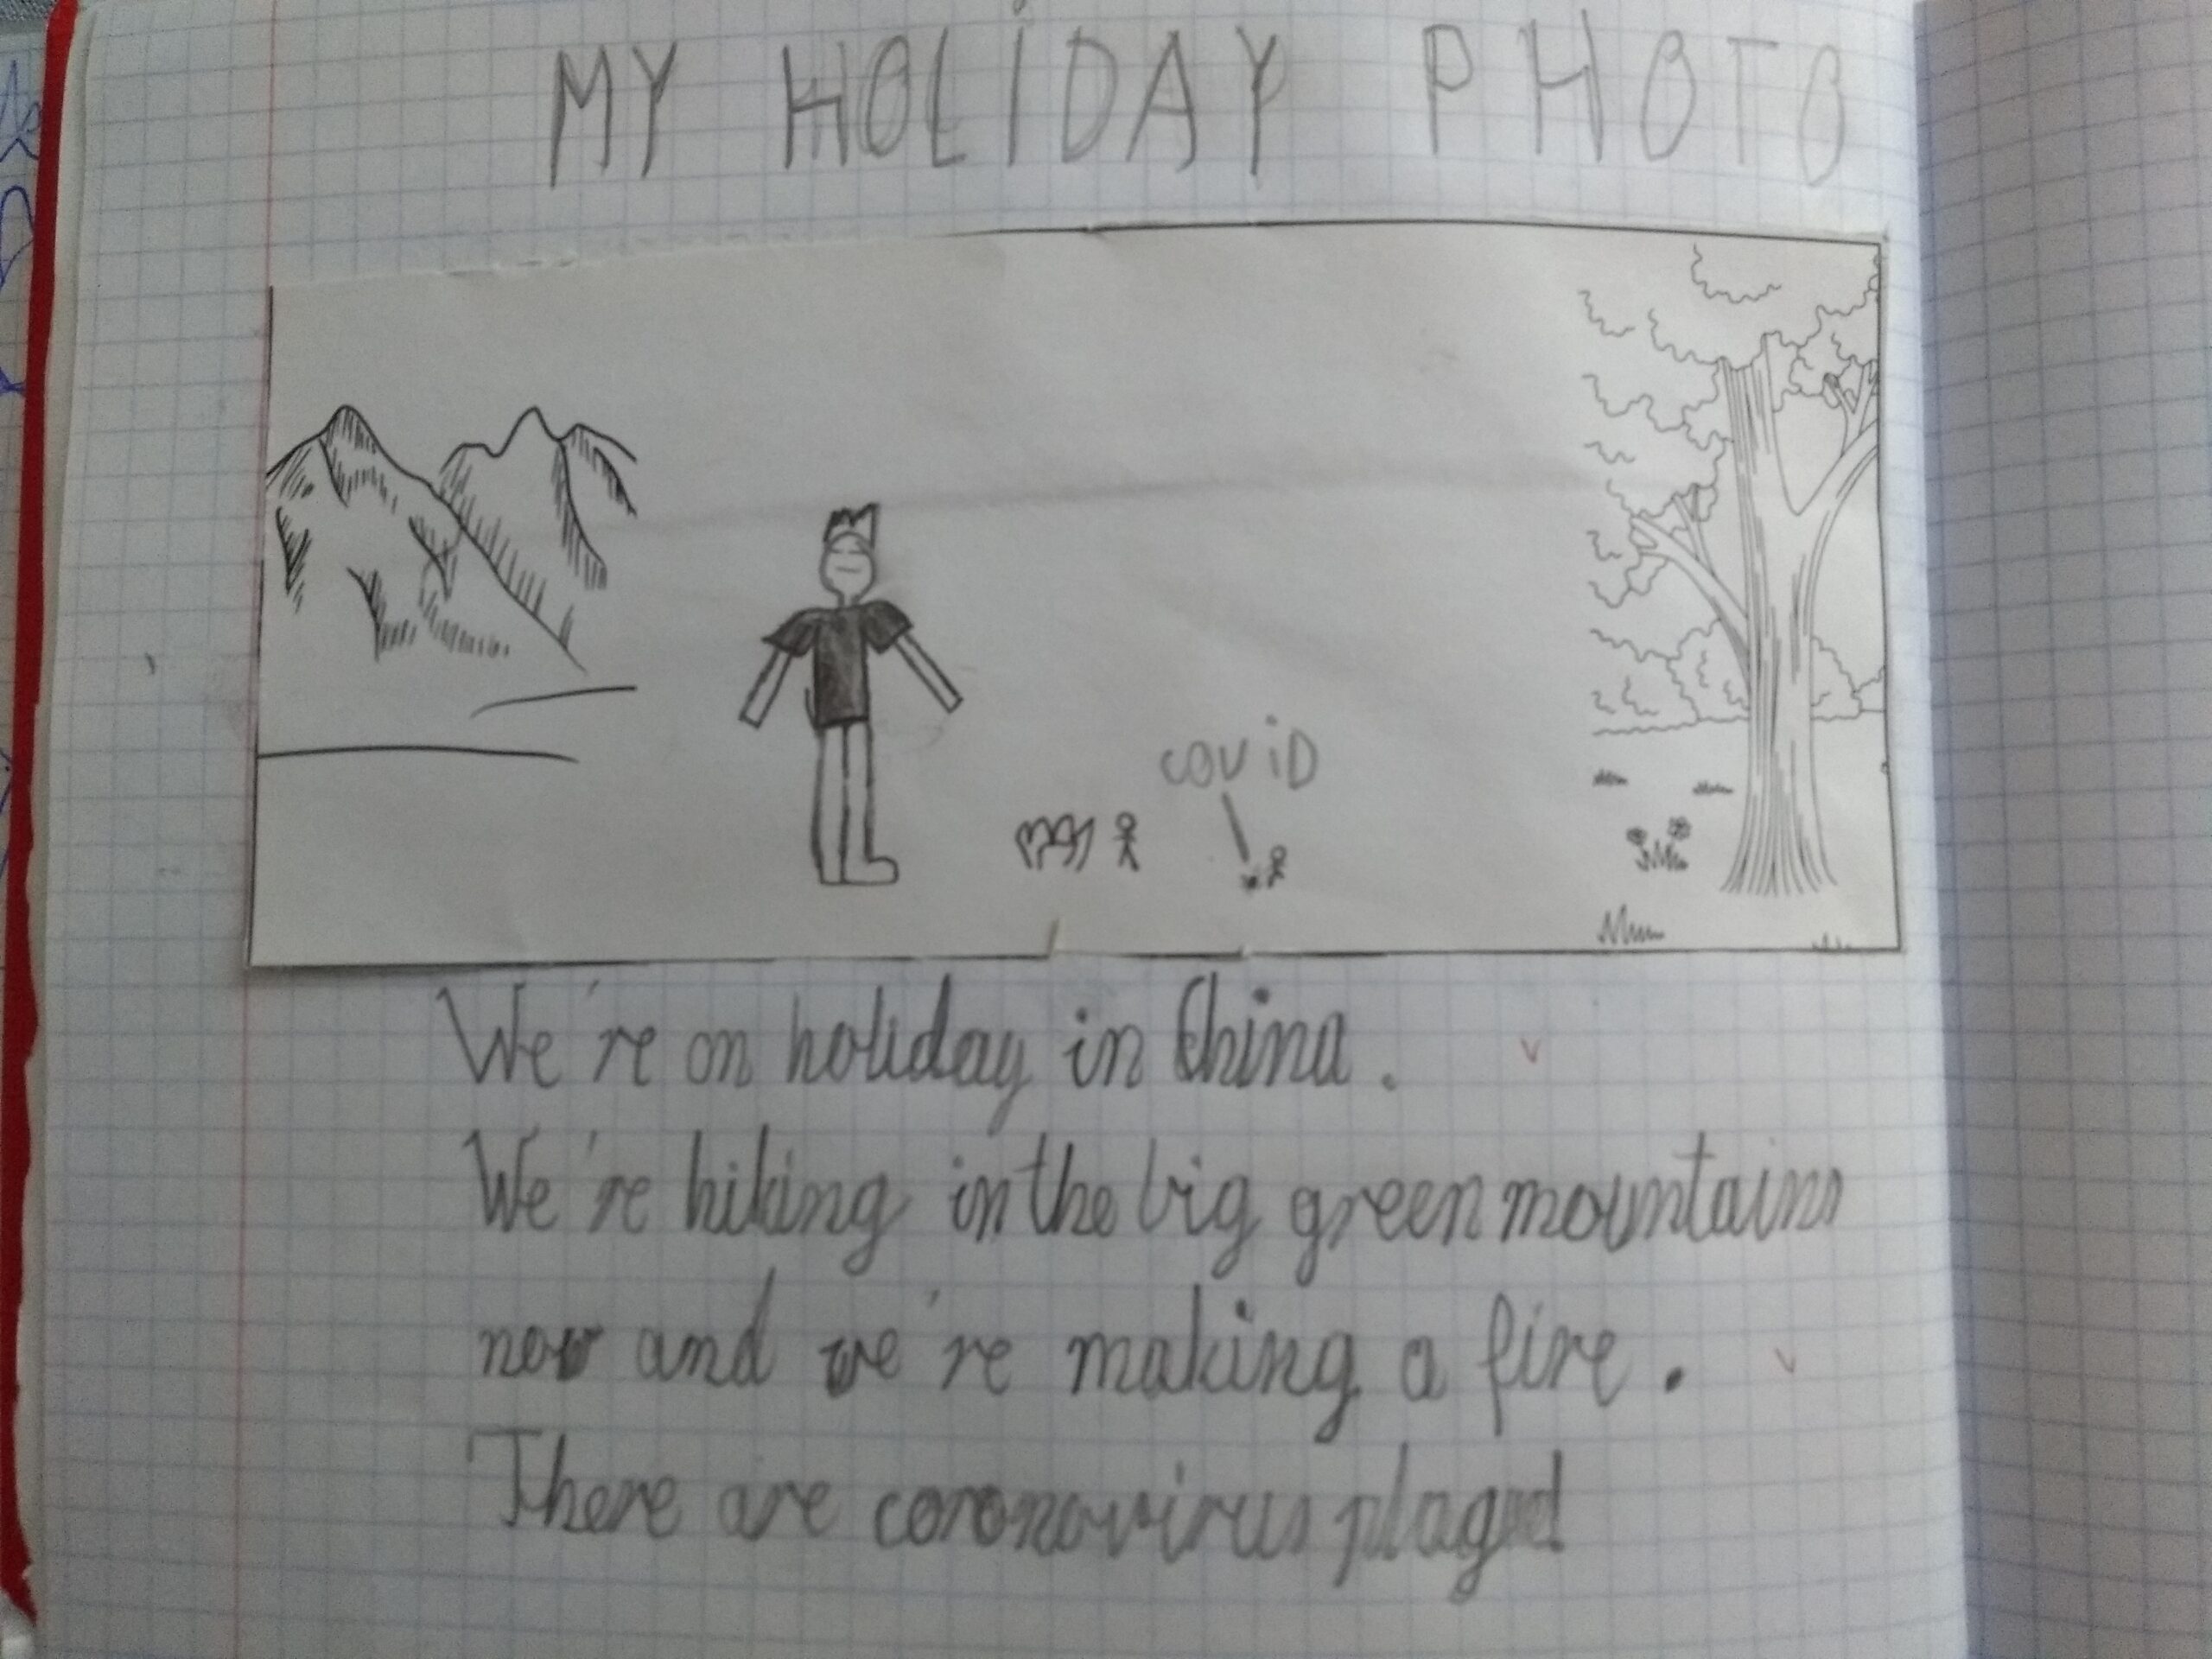 MY HOLiDAY PHOTO
COViD
We're on holiday in China.
We're hiking in the big green mountains
now and we're making a fire.
There are coronavirus